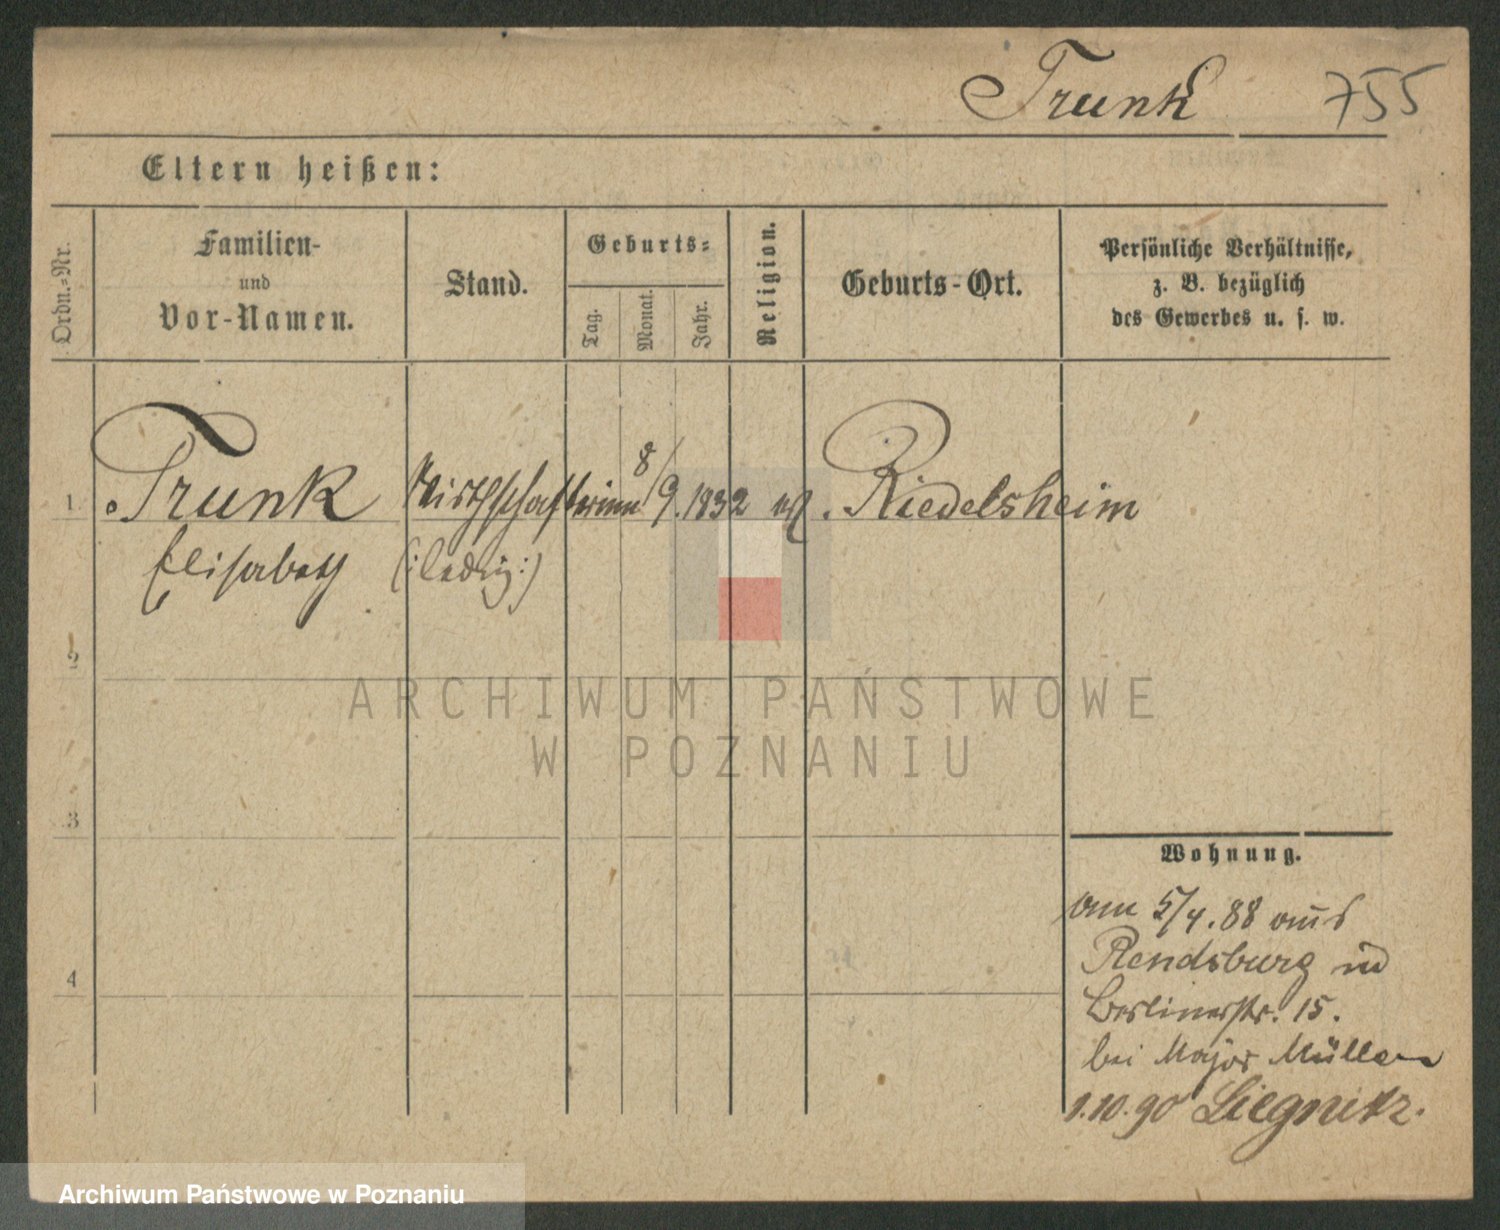 Trunk 755
Eltern heißen:
Ordn.-Nr.
Familien-
und
Vor-Namen.
Stand.
Geburts-
Tag.
Monat.
Jahr.
Religion.
Geburts-Ort.
Persönliche Verhältnisse,
z. B. bezüglich
des Gewerbes u. s. w.
1 Trunk Wirthschafterinn 8/9. 1832 Riedelsheim
Elisabeth (: ledig :)
2
3
4
Wohnung.
5/4. 88 aus
Rendsburg in
Berlinerstr. 15.
bei Major Müller
1.10.90 Liegnitz.
ARCHIWUM PAŃSTWOWE
W POZNANIU
Archiwum Państwowe w Poznaniu